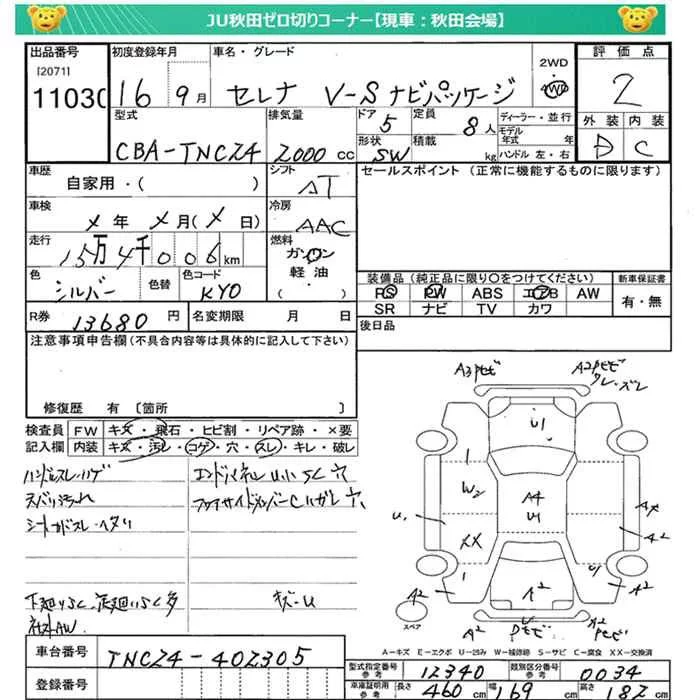 JU秋田ゼロ切りコーナー【現車：秋田会場】
出品番号 初度登録年月 車名・グレード 2WD 評価点
[2071]
11030 16 9月 セレナ V-S ナビパッケージ 4WD 2
型式 排気量 ドア 定員 ディーラー・並行 外装 内装
CBA-TNC24 2000 cc 5 8人 モデル年式 年 D C
形状 積載 ハンドル 左・右
SW kg
車歴 シフト セールスポイント (正常に機能するものに限ります)
自家用・( ) AT
車検 冷房
メ年 メ月(メ日) AAC
走行 燃料
15万4千006km ガソリン
軽油・
( )
色 色替 色コード 装備品(純正品に限り○をつけてください) 新車保証書
シルバー KY0 PS PW ABS エアB AW 有・無
SR ナビ TV カワ
R券 13680円 名変期限 月 日 後日品
注意事項申告欄(不具合内容等は具体的に記入して下さい)
修復歴 有 〔箇所 〕
検査員 FW キズ・飛石・ヒビ割・リペア跡・×要
記入欄 内装 キズ・汚レ・コゲ・穴・スレ・キレ・破レ
ハンドルスレ・ハゲ エンドパネルU小SC穴
シートカドスレ・ヘタリ
キズ-U
社外AW
A3 ﾋﾞﾋﾞ A2
U1
W2
A4
U1
U1
XX
A2
A2
A2
U1
A2
A2
A2
スペア
A－キズ E－エクボ U－凹み W－補修跡 S－サビ C－腐食 XX－交換済
車台番号 TNC24-402305
型式指定番号 参考 12340 類別区分番号 参考 0034
登録番号
車庫証明用 参考 長さ 460cm 幅 169cm 高さ 182cm